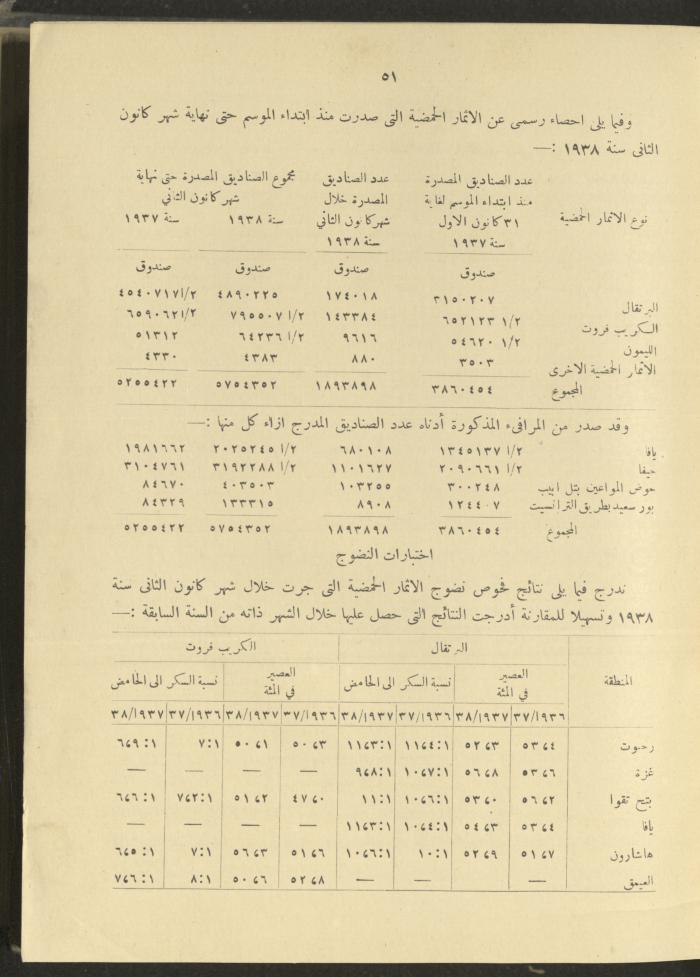 ٥١
وفيما يلى احصاء رسمى عن الاثمار الحمضية التى صدرت منذ ابتداء الموسم حتى نهاية شهر كانون
الثانى سنة ١٩٣٨ :—
نوع الاثمار الحمضية | عدد الصناديق المصدرة منذ ابتداء الموسم لغاية ٣١ كانون الاول سنة ١٩٣٧ | عدد الصناديق المصدرة خلال شهر كانون الثاني سنة ١٩٣٨ | مجموع الصناديق المصدرة حتى نهاية شهر كانون الثاني سنة ١٩٣٨ | سنة ١٩٣٧
صندوق | صندوق | صندوق | صندوق
البرتقال | ٣١٥٠٢٠٧ | ١٧٤٠١٨ | ٤٨٩٠٢٢٥ | ٤٥٤٠٧١٧ ١/٢
الكريب فروت | ٦٥٢١٢٣ ١/٢ | ١٤٣٣٨٤ | ٧٩٥٥٠٧ ١/٢ | ٦٥٩٠٦٢ ١/٢
الليمون | ٥٤٦٢٠ ١/٢ | ٩٦١٦ | ٦٤٢٣٦ ١/٢ | ٥١٣١٢
الاثمار الحمضية الاخرى | ٣٥٠٣ | ٨٨٠ | ٤٣٨٣ | ٤٣٣٠
المجموع | ٣٨٦٠٤٥٤ | ١٨٩٣٨٩٨ | ٥٧٥٤٣٥٢ | ٥٢٥٥٤٢٢
وقد صدر من المرافىء المذكورة أدناه عدد الصناديق المدرج ازاء كل منها :—
يافا | ١٣٤٥١٣٧ ١/٢ | ٦٨٠١٠٨ | ٢٠٢٥٢٤٥ ١/٢ | ١٩٨١٦٦٢
حيفا | ٢٠٩٠٦٦١ ١/٢ | ١١٠١٦٢٧ | ٣١٩٢٢٨٨ ١/٢ | ٣١٠٤٧٦١
حوض المواعين بتل ابيب | ٣٠٠٢٤٨ | ١٠٣٢٥٥ | ٤٠٣٥٠٣ | ٨٤٦٧٠
بور سعيد بطريق الترانسيت | ١٢٤٤٠٧ | ٨٩٠٨ | ١٣٣٣١٥ | ٨٤٣٢٩
المجموع | ٣٨٦٠٤٥٤ | ١٨٩٣٨٩٨ | ٥٧٥٤٣٥٢ | ٥٢٥٥٤٢٢
اختبارات النضوج
ندرج فيما يلى نتائج فحوص نضوج الاثمار الحمضية التى جرت خلال شهر كانون الثانى سنة
١٩٣٨ وتسهيلا للمقارنة أدرجت النتائج التى حصل عليها خلال الشهر ذاته من السنة السابقة :—
المنطقة | البرتقال | الكريب فروت
العصير في المئة | نسبة السكر الى الحامض | العصير في المئة | نسبة السكر الى الحامض
٣٧/١٩٣٦ | ٣٨/١٩٣٧ | ٣٧/١٩٣٦ | ٣٨/١٩٣٧ | ٣٧/١٩٣٦ | ٣٨/١٩٣٧ | ٣٧/١٩٣٦ | ٣٨/١٩٣٧
رحبوت | ٥٣،٤ | ٥٢،٣ | ١١،٤:١ | ١١،٣:١ | ٥٠،٣ | ٥٠،١ | ٧:١ | ٦،٩:١
غزة | ٥٣،٦ | ٥٦،٨ | ١٠،٧:١ | ٩،٨:١ | — | — | — | —
بتح تقوا | ٥٦،٢ | ٥٣،٠ | ١٠،٦:١ | ١١:١ | ٤٧،٠ | ٥١،٢ | ٧،٢:١ | ٦،٦:١
يافا | ٥٣،٤ | ٥٤،٣ | ١٠،٤:١ | ١١،٣:١ | — | — | — | —
هاشارون | ٥١،٧ | ٥٢،٩ | ١٠:١ | ١٠،٦:١ | ٥١،٦ | ٥٦،٣ | ٧:١ | ٦،٥:١
العيمق | — | — | — | ٥٢،٨ | ٥٠،٦ | ٨:١ | ٧،٦:١